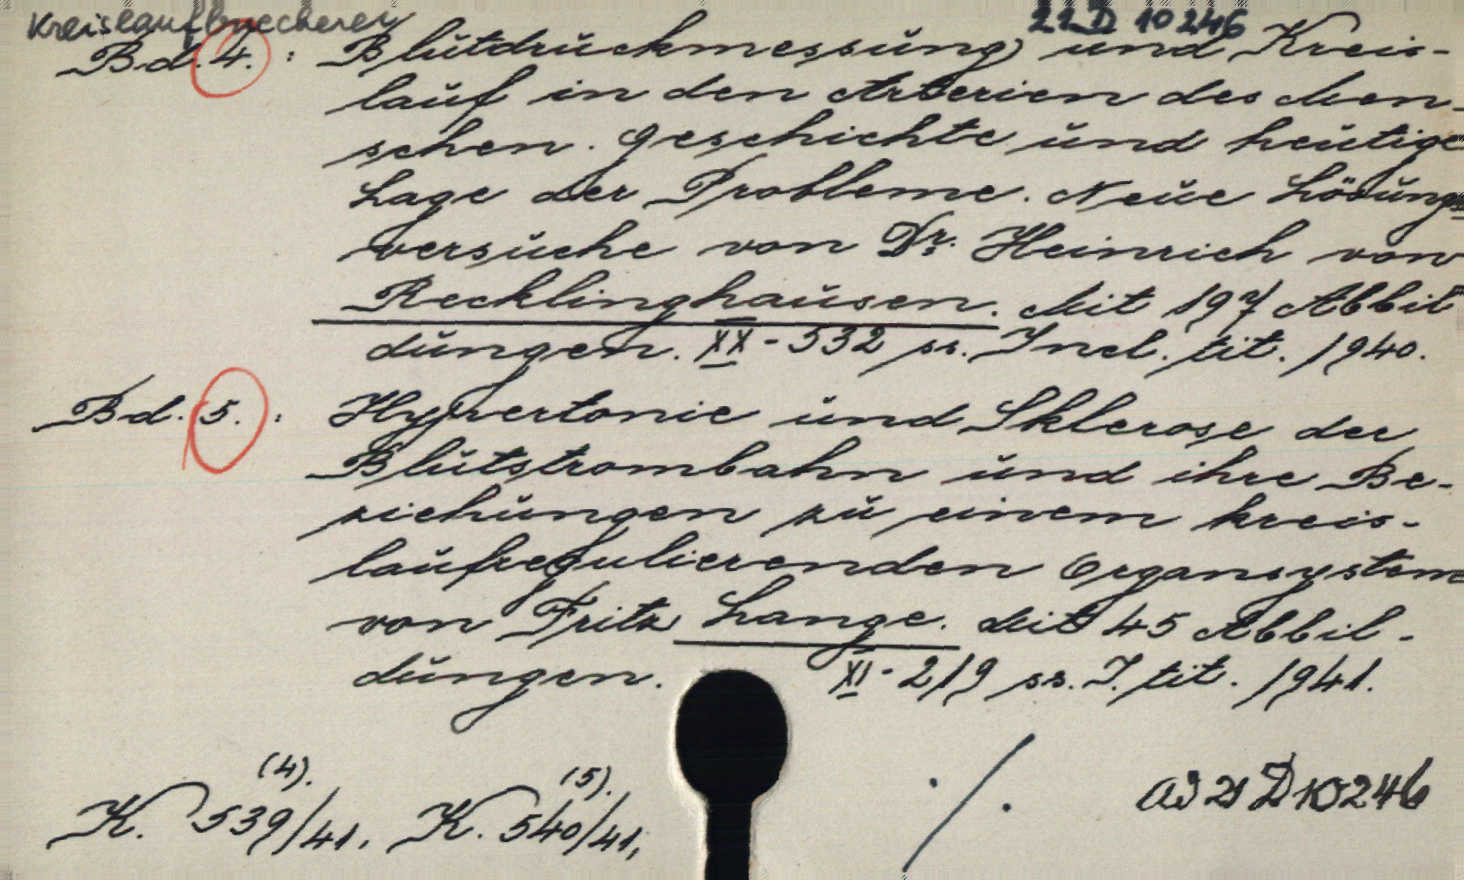 Kreislaufbuecherey 21 D 10246
Bd. 4. : Blutdruckmessung und Kreis-
lauf in den Arterien des Men-
schen. Geschichte und heutige
Lage der Probleme. Neue Lösungs-
versuche von Dr. Heinrich von
Recklinghausen. Mit 197 Abbil
dungen. XX - 532 ss. Incl. tit. 1940.
Bd. 5. : Hypertonie und Sklerose der
Blutstrombahn und ihre Be-
ziehungen zu einem kreis-
laufregulierenden Organsystem
von Fritz Lange. Mit 45 Abbil-
dungen. XI - 219 ss. I. tit. 1941.
(4). (5).
K. 539/41. K. 540/41, ./. ad 21 D 10246